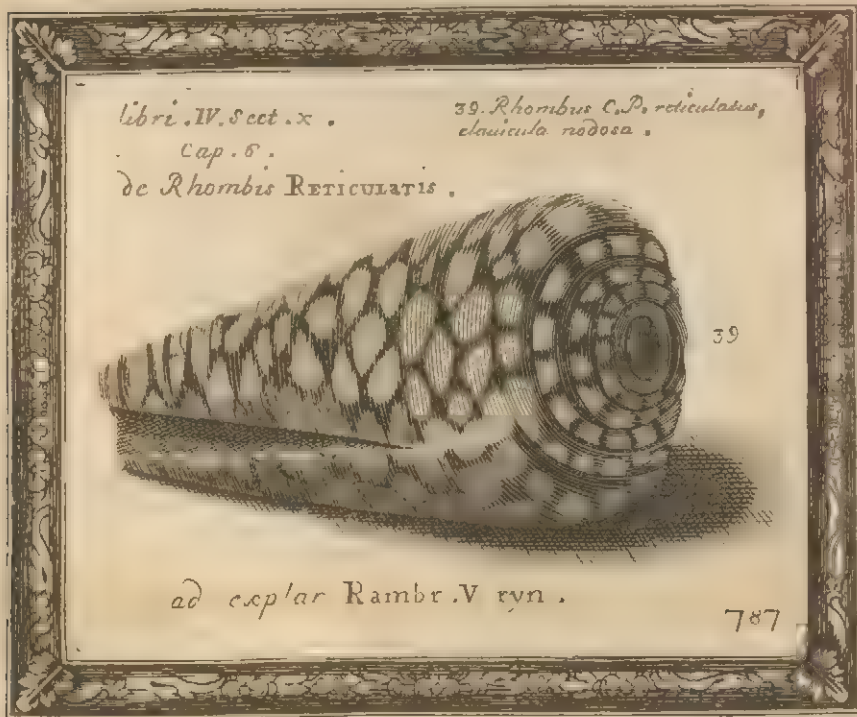 libri .IV. Sect .x .
Cap . 6 .
de Rhombis RETICULATIS .
39. Rhombus C. P. reticulatus,
clauicula nodosa .
39
ad exp'ar Rambr .V ryn .
787